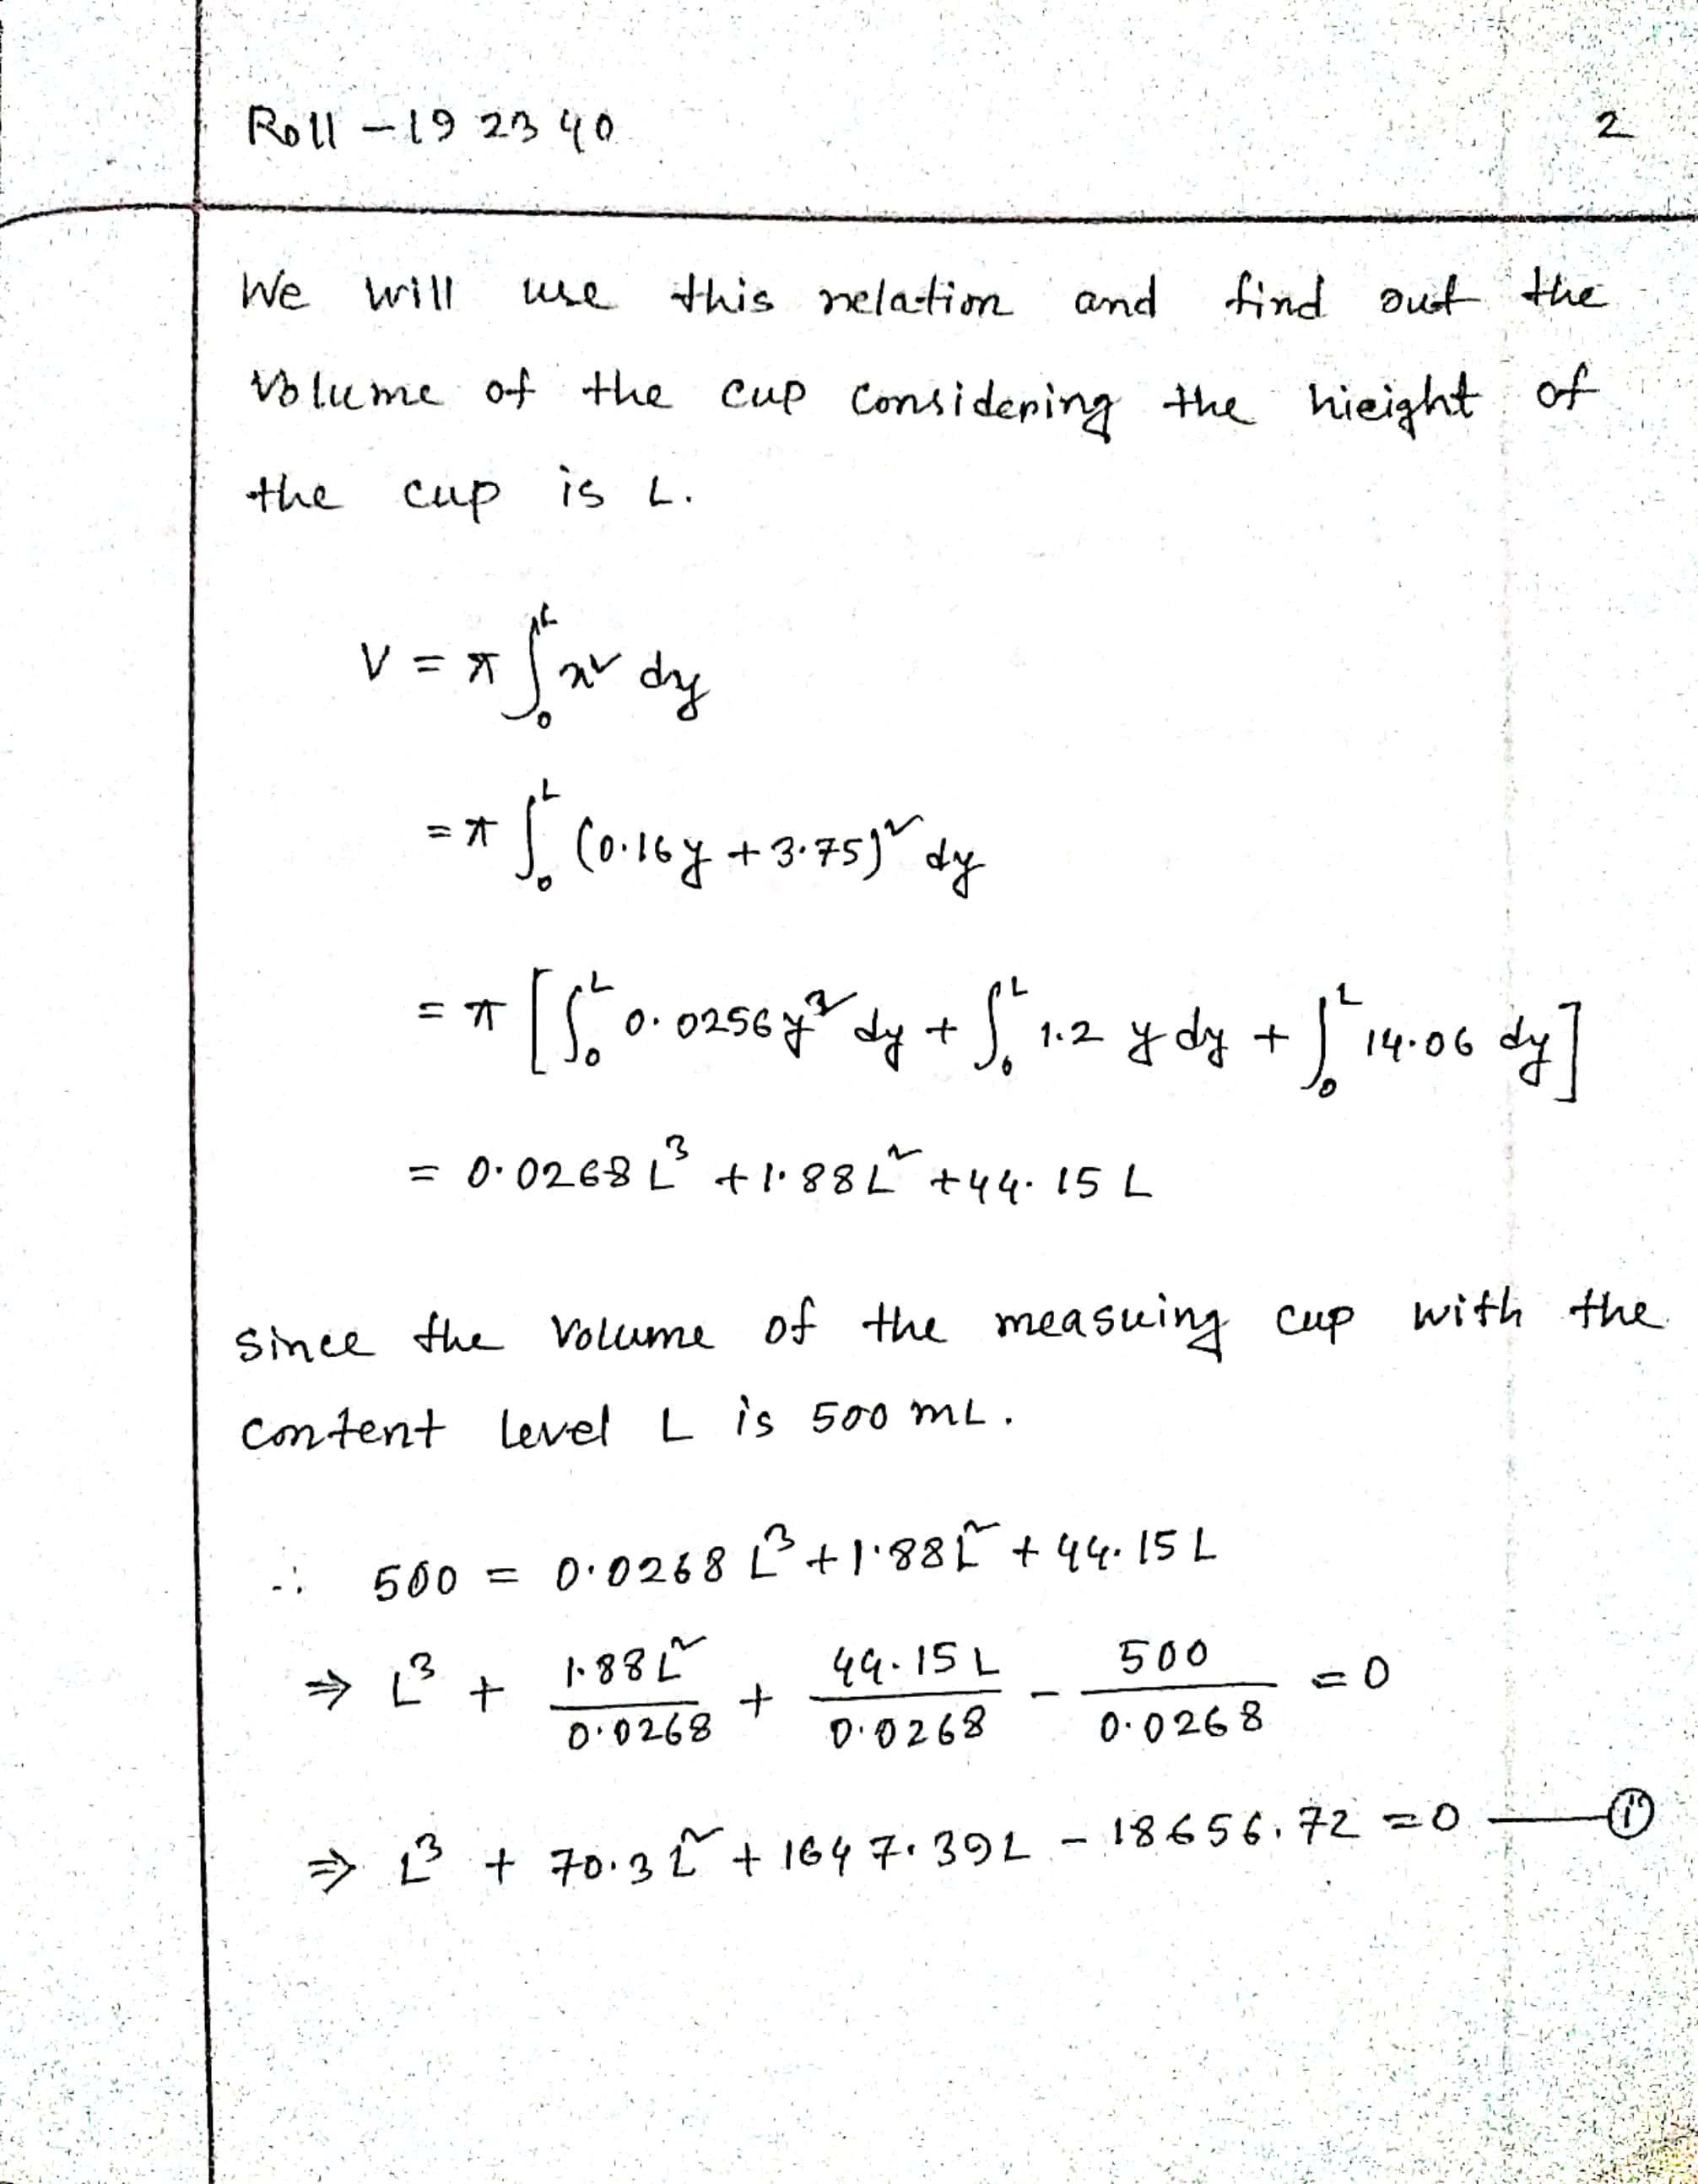 Roll - 192340
2
We will use this relation and find out the
volume of the cup considering the hieight of
the cup is L.
V = π ∫₀ᴸ x² dy
= π ∫₀ᴸ (0.16y + 3.75)² dy
= π [∫₀ᴸ 0.0256 y² dy + ∫₀ᴸ 1.2 y dy + ∫₀ᴸ 14.06 dy]
= 0.0268 L³ + 1.88 L² + 44.15 L
Since the volume of the measuing cup with the
content level L is 500 mL.
∴ 500 = 0.0268 L³ + 1.88 L² + 44.15 L
⇒ L³ + 1.88 L²/0.0268 + 44.15 L/0.0268 - 500/0.0268 = 0
⇒ L³ + 70.3 L² + 1647.39 L - 18656.72 = 0 — (i)